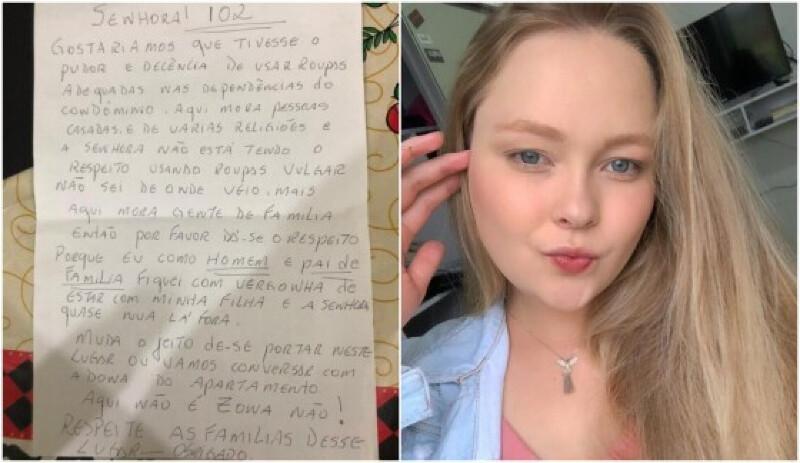 SENHORA! 102
GOSTARIAMOS QUE TIVESSE O
PUDOR E DECÊNCIA DE USAR ROUPAS
ADEQUADAS NAS DEPENDÊNCIAS DO
CONDOMINO. AQUI MORA PESSOAS
CASADAS. E DE VARIAS RELIGIÕES E
A SENHORA NÃO ESTÁ TENDO O
RESPEITO USANDO ROUPAS VULGAR
NÃO SEI DE ONDE VEIO. MAIS
AQUI MORA GENTE DE FAMILIA
ENTÃO POR FAVOR DÊ-SE O RESPEITO
PORQUE EU COMO HOMEM E PAI DE
FAMÍLIA FIQUEI COM VERGONHA DE
ESTAR COM MINHA FILHA E A SENHORA
QUASE NUA LÁ FORA.
MUDA O JEITO DE-SE PORTAR NESTE
LUGAR OU VAMOS CONVERSAR COM
A DONA DO APARTAMENTO
AQUI NÃO É ZONA NÃO!
RESPEITE AS FAMILIAS DESSE
LUGAR — OBRIGADO